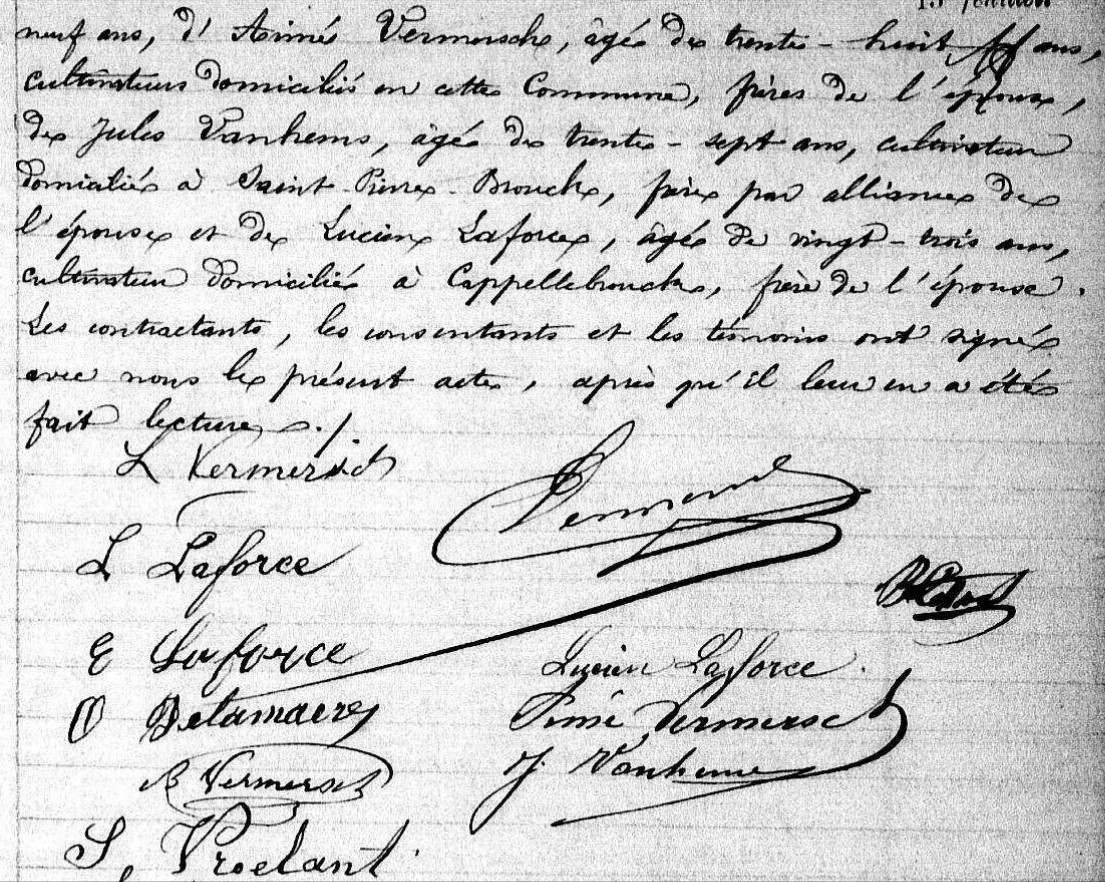 neuf ans, d'Aimé Vermersch, âgé de trente-huit ans,
cultivateurs domiciliés en cette Commune, frères de l'époux,
de Jules Vanhems, âgé de trente-sept ans, cultivateur
domicilié à Saint-Pierre-Brouck, frère par alliance de
l'épouse et de Lucien Laforce, âgé de vingt-trois ans,
cultivateur domicilié à Cappellebrouck, frère de l'épouse.
Les contractants, les consentants et les témoins ont signé
avec nous le présent acte, après qu'il leur en a été
fait lecture ./
L Vermersch
L Laforce
E Laforce
Lucien Laforce.
O Delamaere
Aimé Vermersch
B Vermersch
J. Vanhems
S. Vroelant